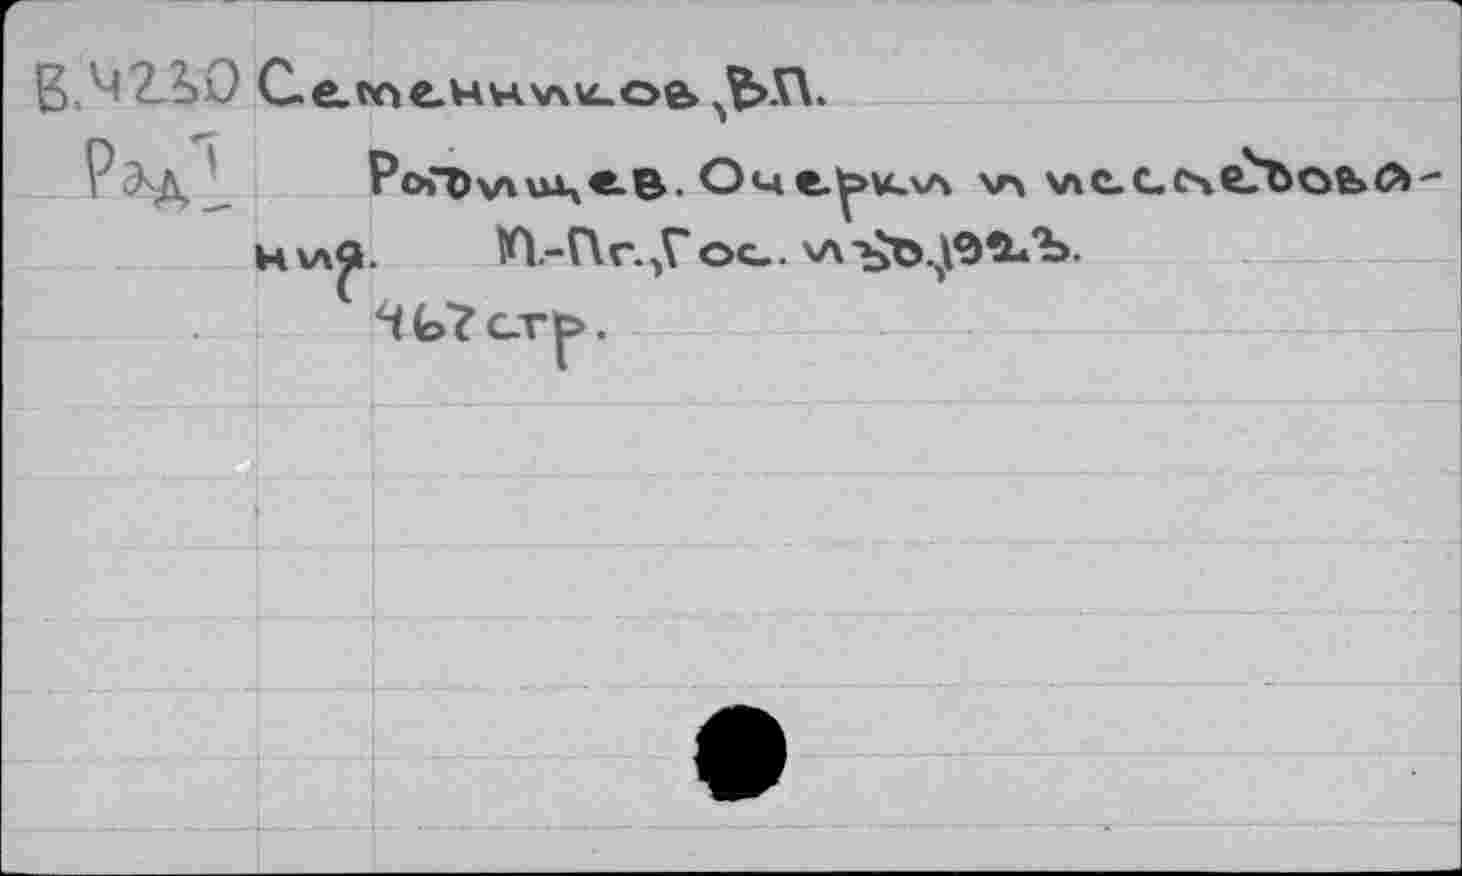 В.4230 Семенников, В.П.
Рад 1 Радищев. Очерки и исследова-
ния. М.-Пг., Гос. изд., 1923.
467 стр.